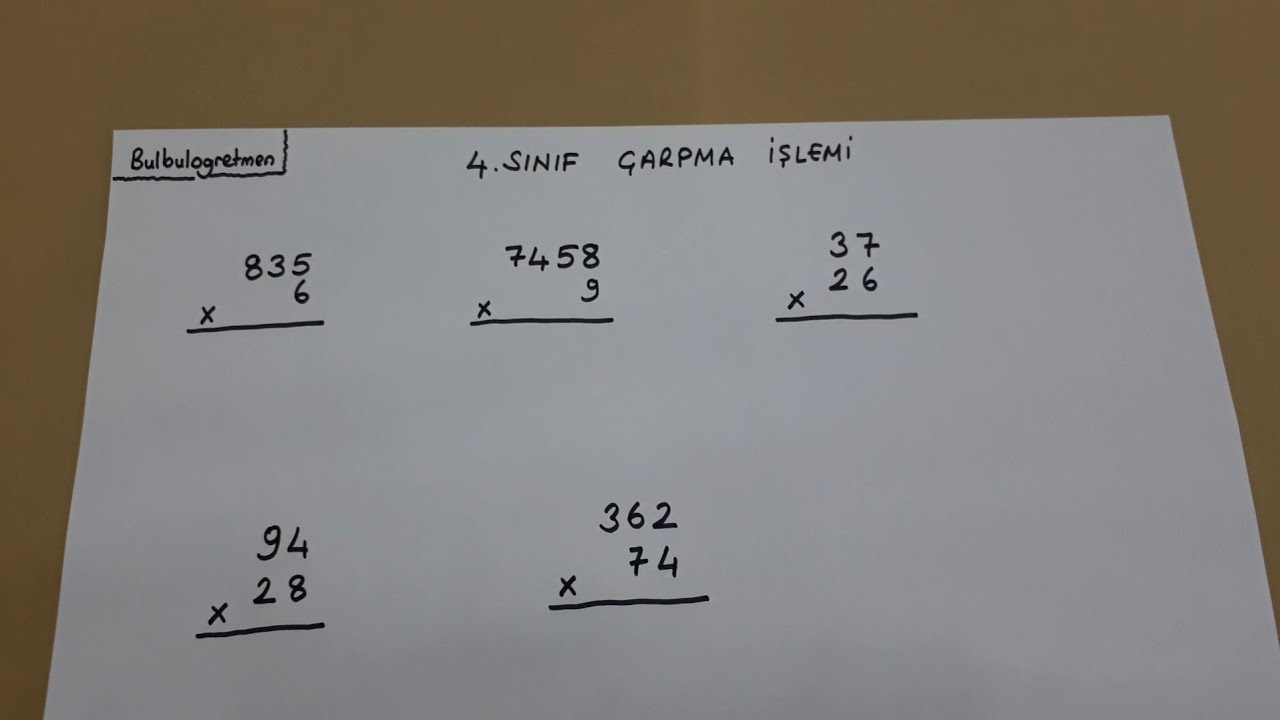 Bulbulogretmen
4. SINIF ÇARPMA İŞLEMİ
835
6
x
7458
9
x
37
26
x
94
28
x
362
74
x